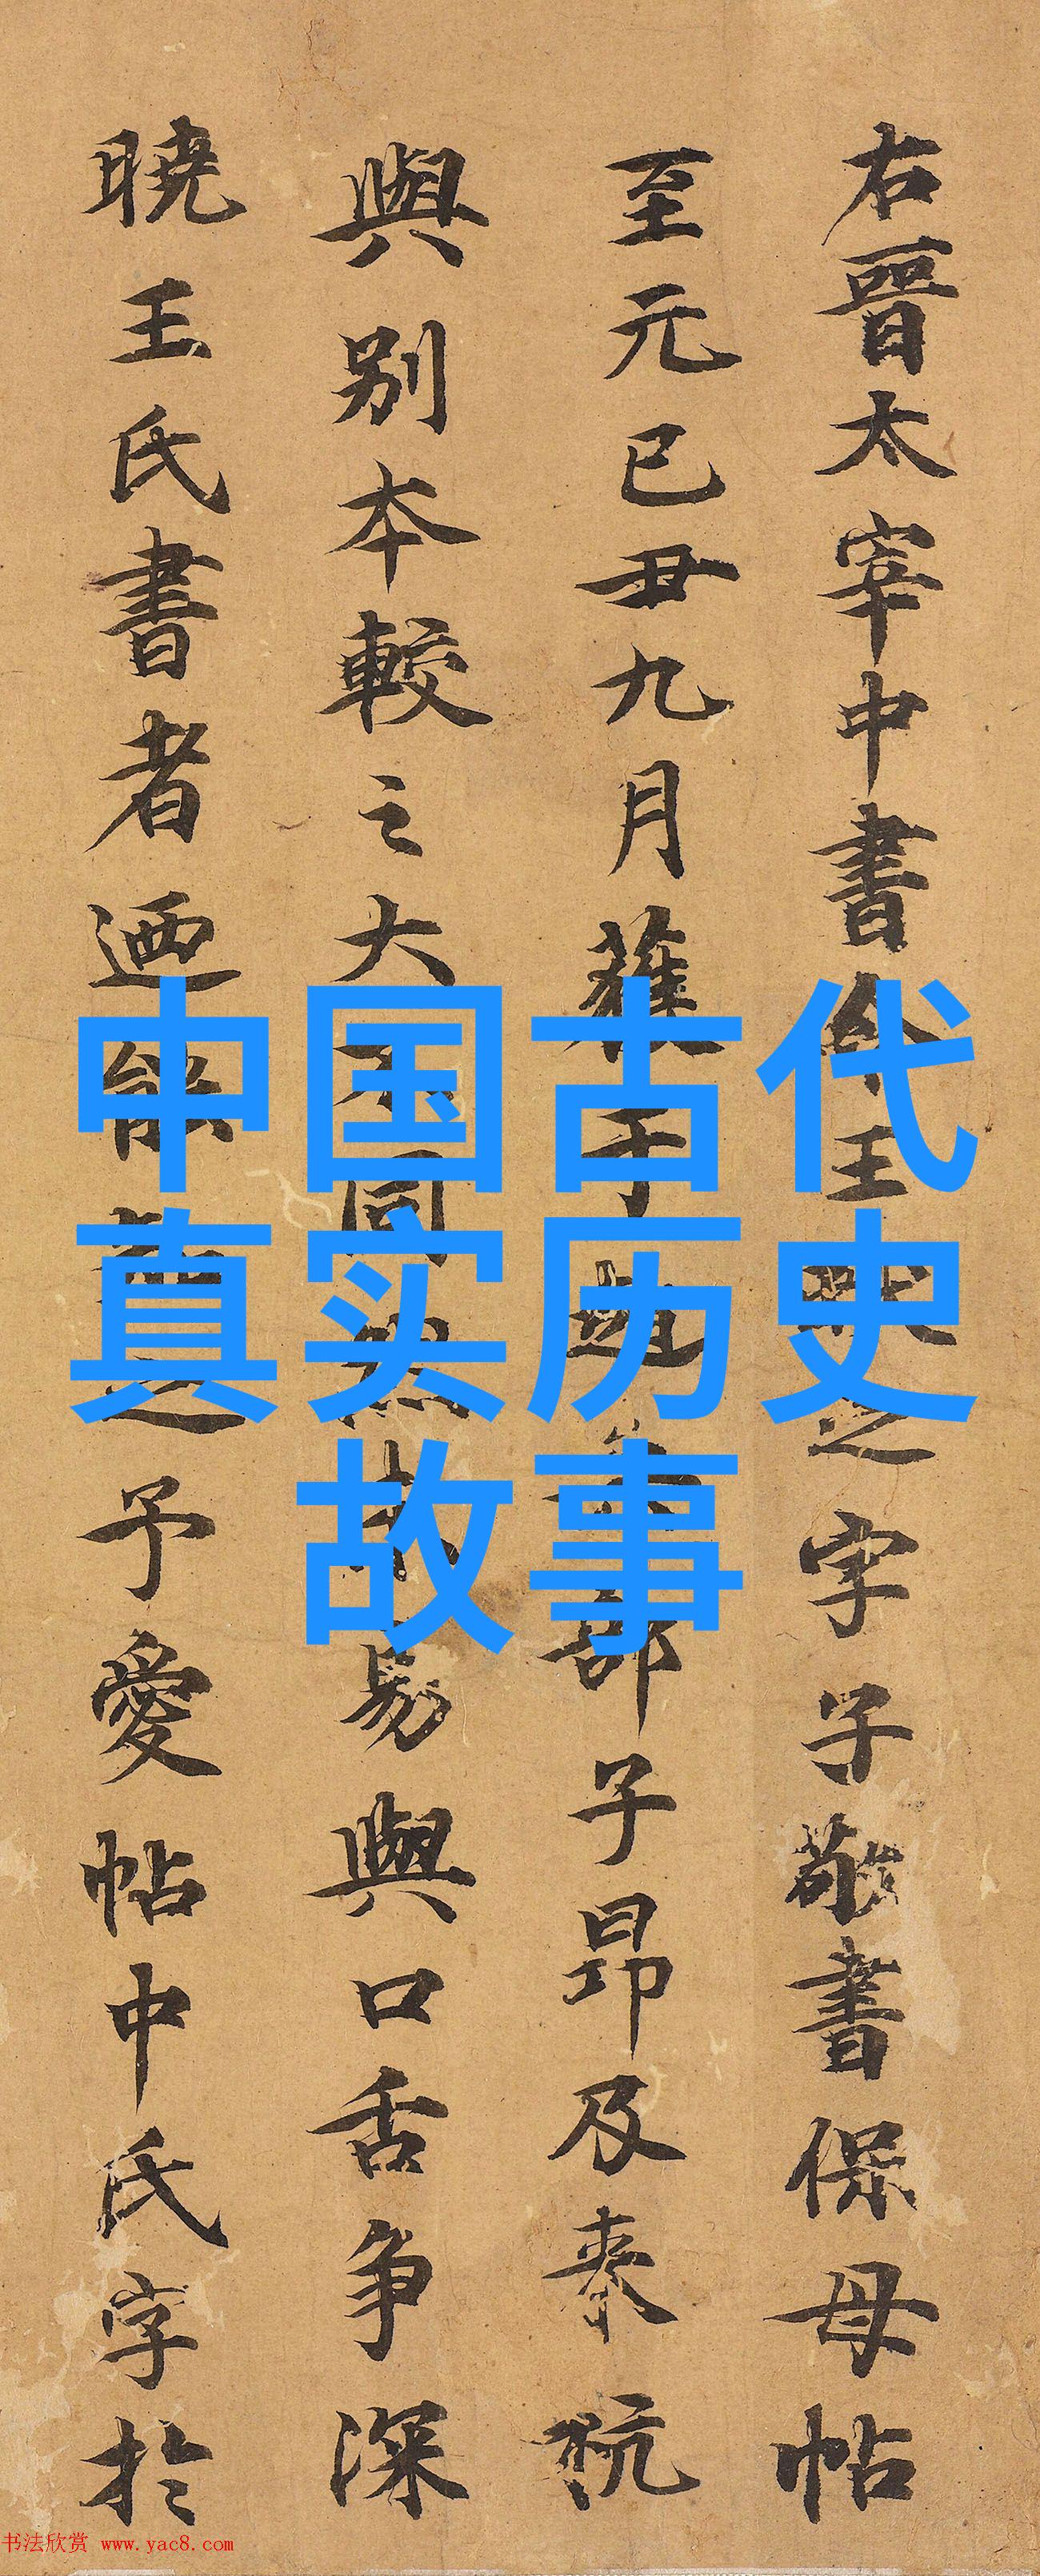 右晉太宰中書令王獻之字子敬書保母帖
至元己丑九月
子昂及泰
與別本較之大不同
易與口舌争深
曉王氏書者迺能
之予愛帖中氏字於
中国古代
真实历史
故事
书法欣赏 www.yac8.com